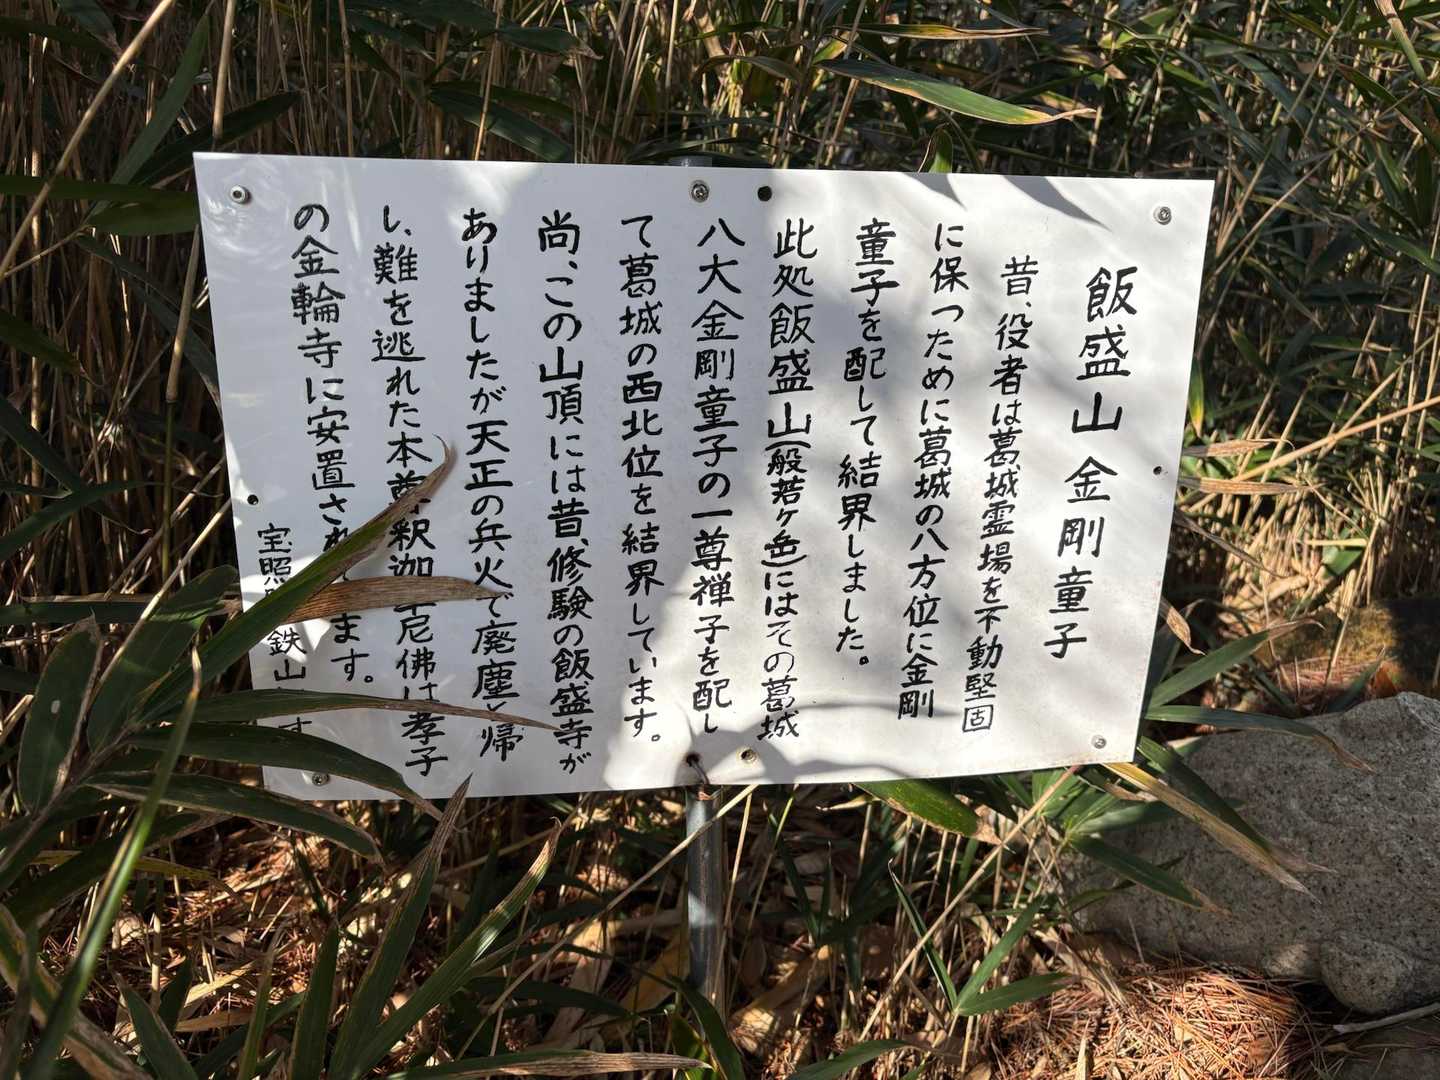 飯盛山 金剛童子
昔、役者は葛城霊場を不動堅固
に保つために葛城の八方位に金剛
童子を配して結界しました。
此処飯盛山(般若ヶ岳)にはその葛城
八大金剛童子の一尊禅子を配し
て葛城の西北位を結界しています。
尚、この山頂には昔、修験の飯盛寺が
ありましたが天正の兵火で廃塵と帰
し、難を逃れた本尊釈迦牟尼佛は孝子
の金輪寺に安置されています。
宝照 鉄山